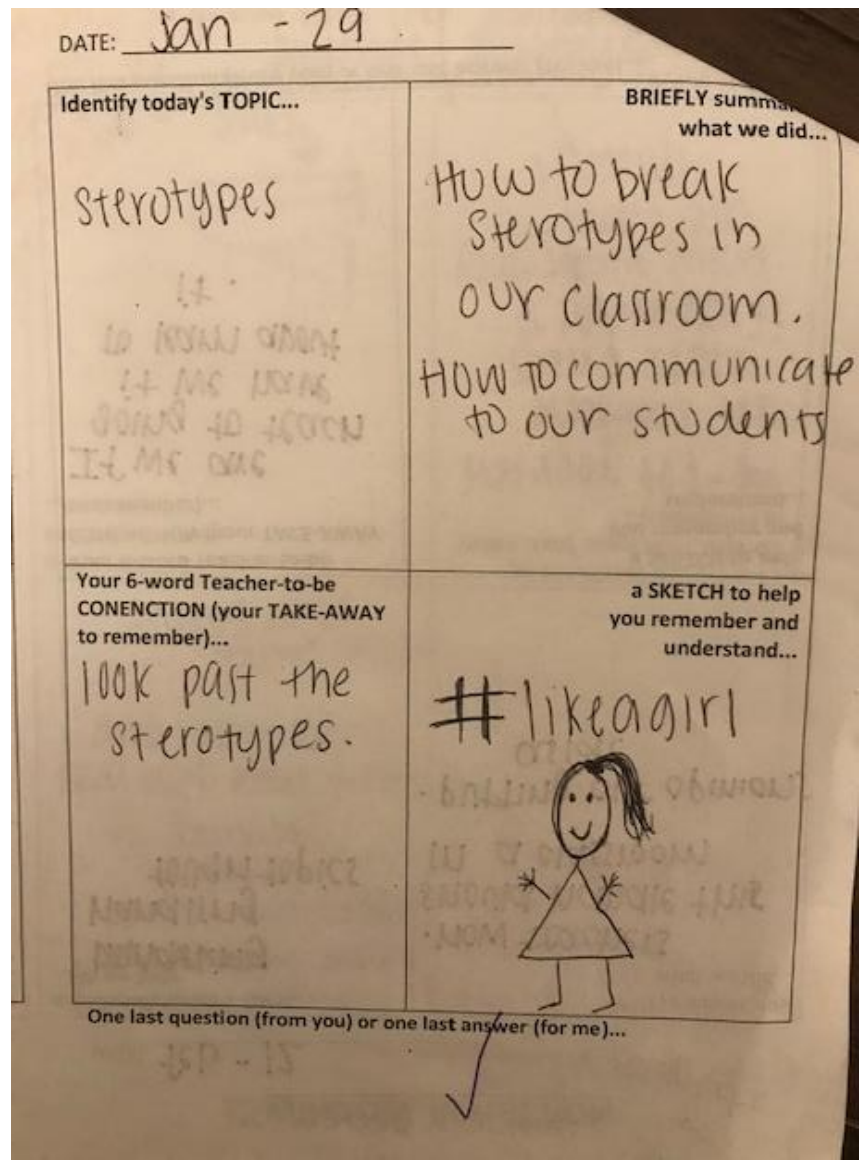 DATE: Jan - 29
Identify today's TOPIC...
sterotypes
BRIEFLY
what we did...
How to break
sterotypes in
our classroom.
How to communicate
to our students
Your 6-word Teacher-to-be
CONENCTION (your TAKE-AWAY
to remember)...
look past the
sterotypes.
a SKETCH to help
you remember and
understand...
#likeagirl
One last question (from you) or one last answer (for me)...